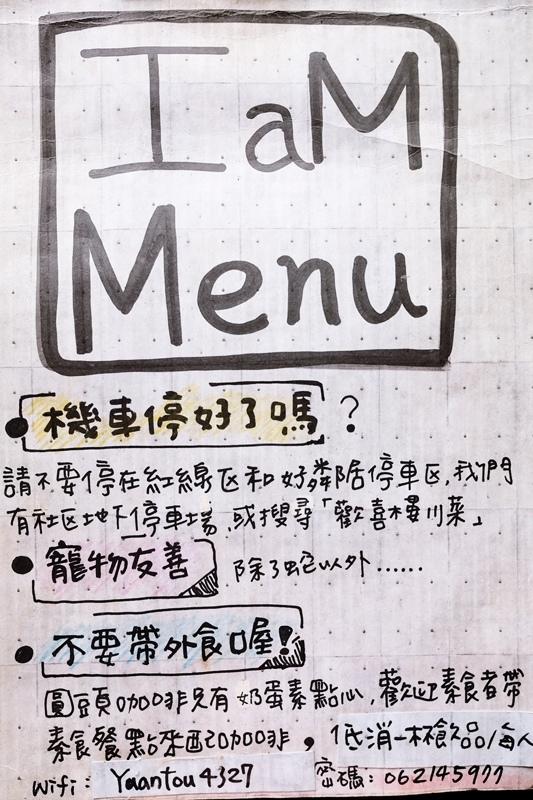 I aM
Menu
機車停好了嗎?
請不要停在紅線区和好鄰居停車区,我們
有社区地下停車場,或搜尋「歡喜樓川菜」
寵物友善 除了蛇以外......
不要帶外食喔!
圓豆頁咖啡只有奶蛋素點心,歡迎素食者帶
素食餐點來配咖啡,低消一杯飲品/每人
Wifi: Yuantou4327 密碼:062145977